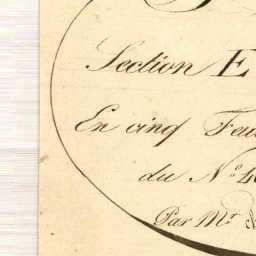 Section E
En cinq Feu
du N.º 4
Par Mr.